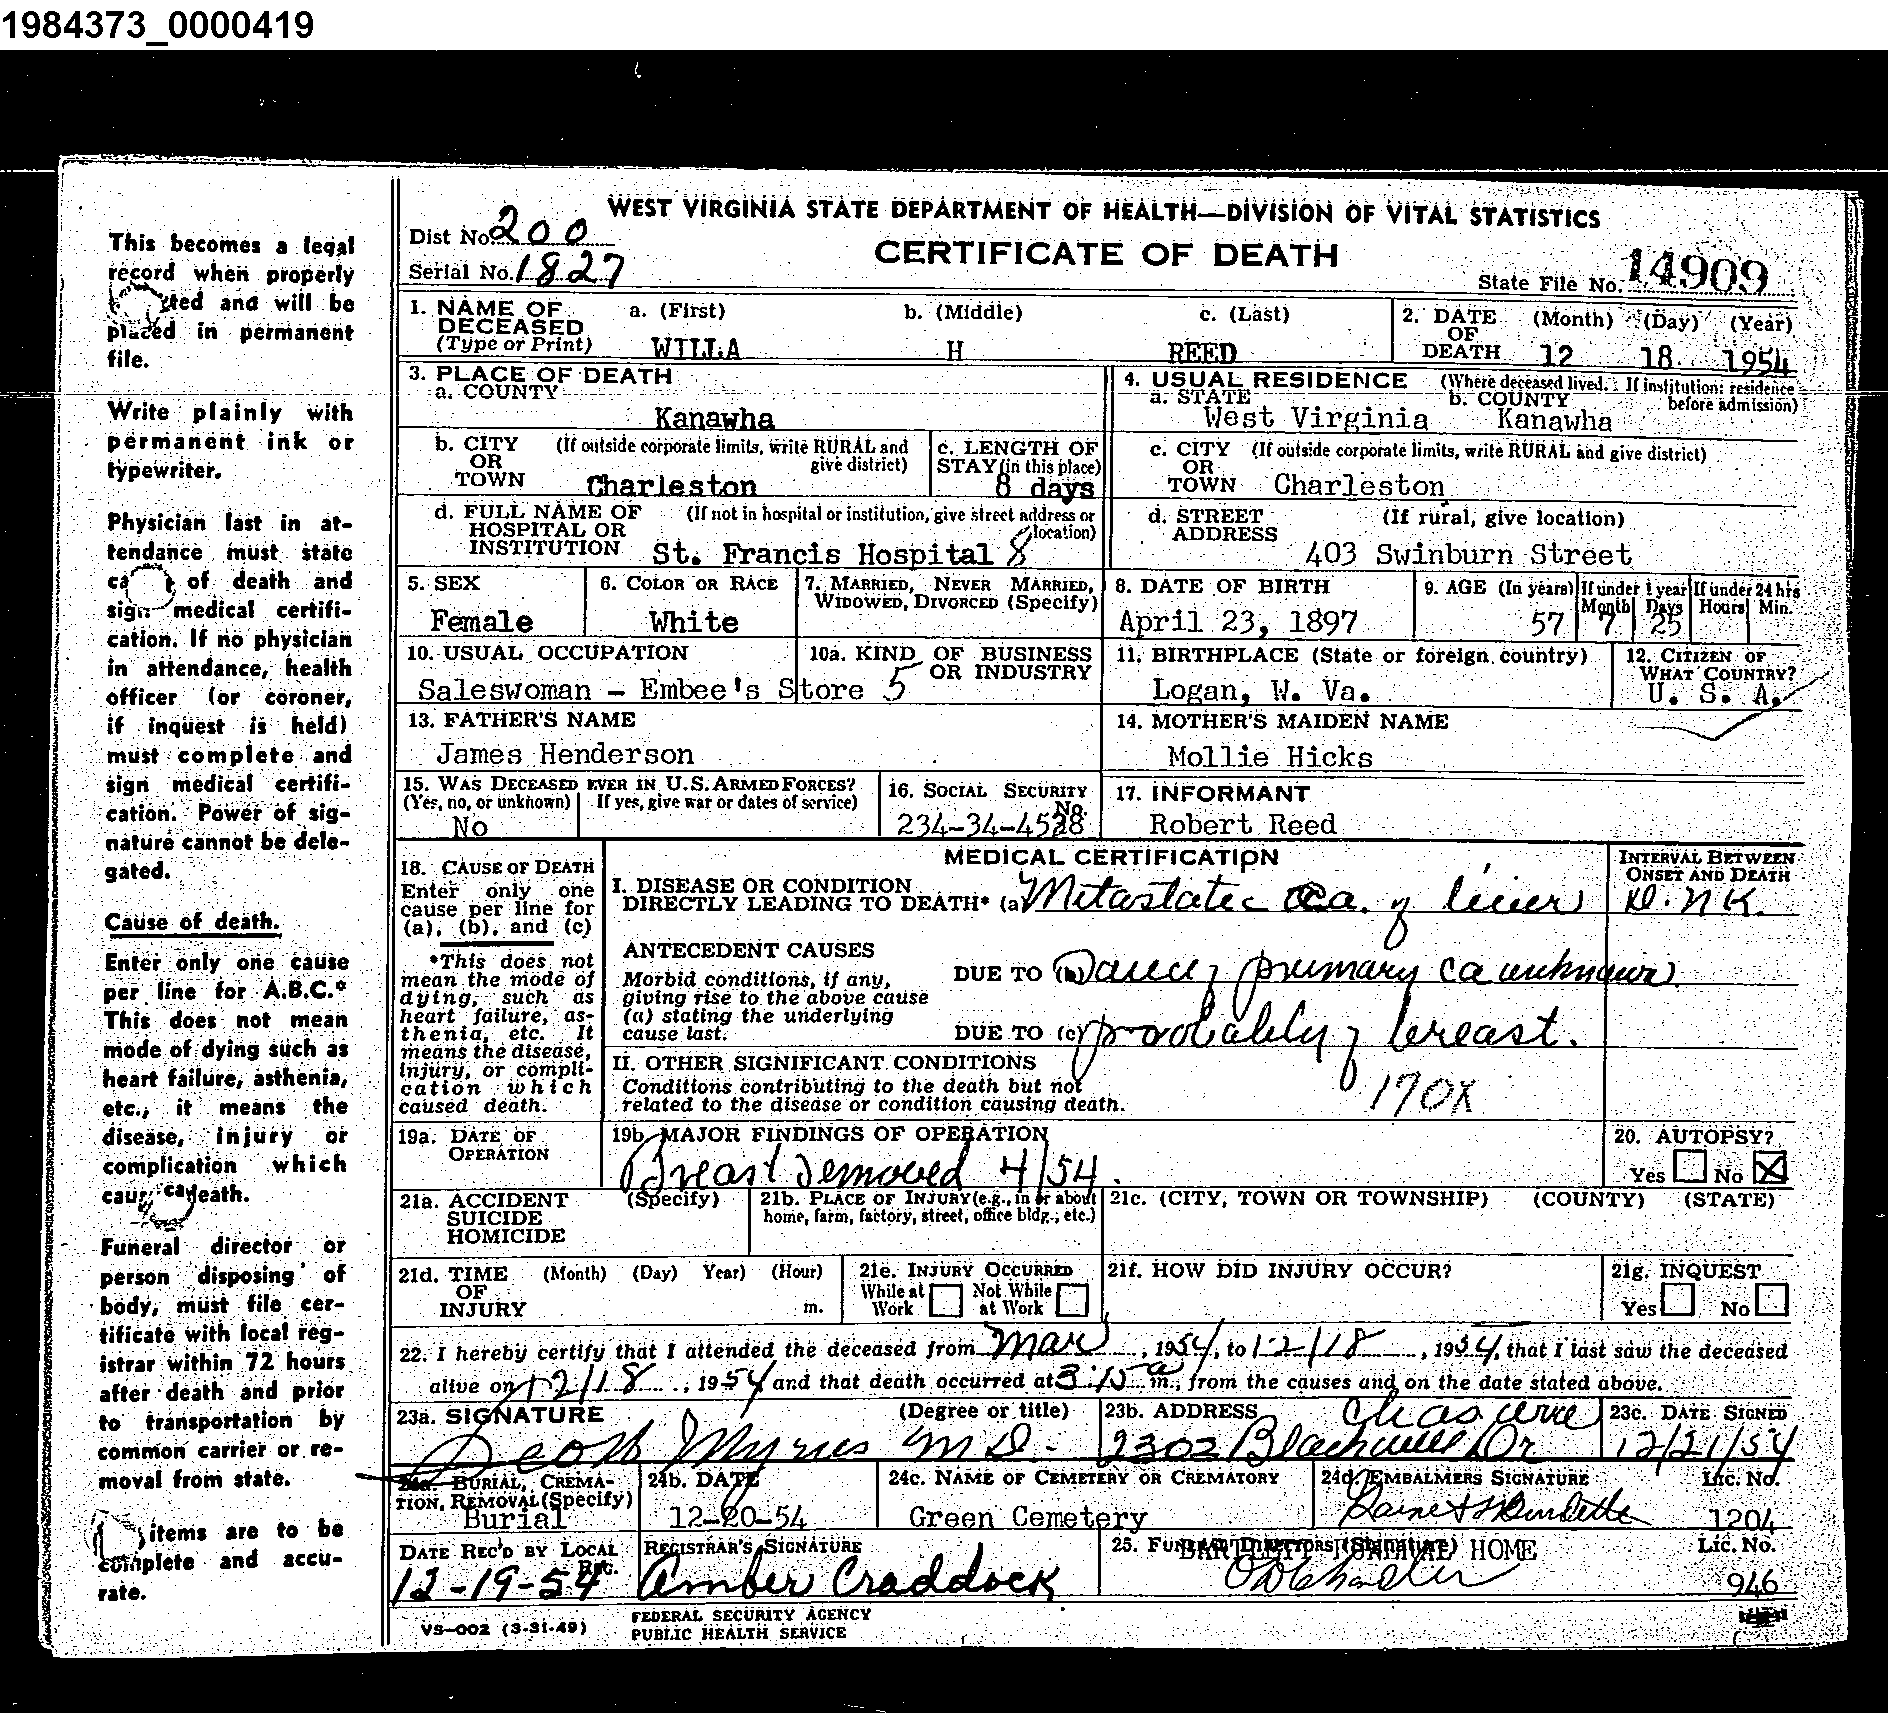 1984373_0000419
This becomes a legal
record when properly
and will be
placed in permanent
file.
Write plainly with
permanent ink or
typewriter.
Physician last in at-
tendance must state
of death and
sign medical certifi-
cation. If no physician
in attendance, health
officer (or coroner,
if inquest is held)
must complete and
sign medical certifi-
cation. Power of sig-
nature cannot be dele-
gated.
Cause of death.
Enter only one cause
per line for A.B.C.*
This does not mean
mode of dying such as
heart failure, asthenia,
etc., it means the
disease, injury or
complication which
death.
Funeral director or
person disposing of
body, must file cer-
tificate with local reg-
istrar within 72 hours
after death and prior
to transportation by
common carrier or re-
moval from state.
items are to be
complete and accu-
rate.
WEST VIRGINIA STATE DEPARTMENT OF HEALTH—DIVISION OF VITAL STATISTICS
Dist No. 200
CERTIFICATE OF DEATH
Serial No. 1827
State File No. 14909
1. NAME OF DECEASED (Type or Print) a. (First) b. (Middle) c. (Last)
WILLA H REED
2. DATE OF DEATH (Month) (Day) (Year)
12 18 1954
3. PLACE OF DEATH
a. COUNTY
Kanawha
4. USUAL RESIDENCE (Where deceased lived. If institution: residence before admission)
a. STATE b. COUNTY
West Virginia Kanawha
b. CITY OR TOWN (If outside corporate limits, write RURAL and give district)
Charleston
c. LENGTH OF STAY (in this place)
8 days
c. CITY OR TOWN (If outside corporate limits, write RURAL and give district)
Charleston
d. FULL NAME OF HOSPITAL OR INSTITUTION (If not in hospital or institution, give street address or location)
St. Francis Hospital 8
d. STREET ADDRESS (If rural, give location)
403 Swinburn Street
5. SEX
Female
6. COLOR OR RACE
White
7. MARRIED, NEVER MARRIED, WIDOWED, DIVORCED (Specify)
8. DATE OF BIRTH
April 23, 1897
9. AGE (In years) If under 1 year If under 24 hrs
Month Days Hours Min.
57 7 25
10. USUAL OCCUPATION
10a. KIND OF BUSINESS OR INDUSTRY
Saleswoman - Embee's Store 5
11. BIRTHPLACE (State or foreign country)
Logan, W. Va.
12. CITIZEN OF WHAT COUNTRY?
U. S. A.
13. FATHER'S NAME
James Henderson
14. MOTHER'S MAIDEN NAME
Mollie Hicks
15. WAS DECEASED EVER IN U.S. ARMED FORCES?
(Yes, no, or unknown) If yes, give war or dates of service)
No
16. SOCIAL SECURITY No.
234-34-4528
17. INFORMANT
Robert Reed
18. CAUSE OF DEATH
Enter only one
cause per line for
(a), (b), and (c)
*This does not
mean the mode of
dying, such as
heart failure, as-
thenia, etc. It
means the disease,
injury, or compli-
cation which
caused death.
MEDICAL CERTIFICATION
INTERVAL BETWEEN ONSET AND DEATH
I. DISEASE OR CONDITION
DIRECTLY LEADING TO DEATH* (a) Metastatic Ca. of liver D.N.K.
ANTECEDENT CAUSES
Morbid conditions, if any,
giving rise to the above cause
(a) stating the underlying
cause last.
DUE TO (b) primary ca unknown
DUE TO (c) probably of breast.
II. OTHER SIGNIFICANT CONDITIONS
Conditions contributing to the death but not
related to the disease or condition causing death.
170X
19a. DATE OF OPERATION
19b. MAJOR FINDINGS OF OPERATION
Breast removed 4/54.
20. AUTOPSY?
Yes No X
21a. ACCIDENT SUICIDE HOMICIDE (Specify)
21b. PLACE OF INJURY (e.g., in or about home, farm, factory, street, office bldg., etc.)
21c. (CITY, TOWN OR TOWNSHIP) (COUNTY) (STATE)
21d. TIME OF INJURY (Month) (Day) Year) (Hour) m.
21e. INJURY OCCURRED
While at Work Not While at Work
21f. HOW DID INJURY OCCUR?
21g. INQUEST
Yes No
22. I hereby certify that I attended the deceased from Mar, 1954, to 12/18, 1954, that I last saw the deceased
alive on 12/18, 1954 and that death occurred at 3:15 a m., from the causes and on the date stated above.
23a. SIGNATURE (Degree or title)
M.D.
23b. ADDRESS
2302 Dr
23c. DATE SIGNED
12/21/54
24a. BURIAL, CREMATION, REMOVAL (Specify)
Burial
24b. DATE
12-20-54
24c. NAME OF CEMETERY OR CREMATORY
Green Cemetery
24d. EMBALMERS SIGNATURE Lic. No.
1204
DATE REC'D BY LOCAL REG.
12-19-54
REGISTRAR'S SIGNATURE
Amber Craddock
25. FUNERAL DIRECTORS (Signature) Lic. No.
FUNERAL HOME
946
VS-002 (3-31-49)
FEDERAL SECURITY AGENCY
PUBLIC HEALTH SERVICE